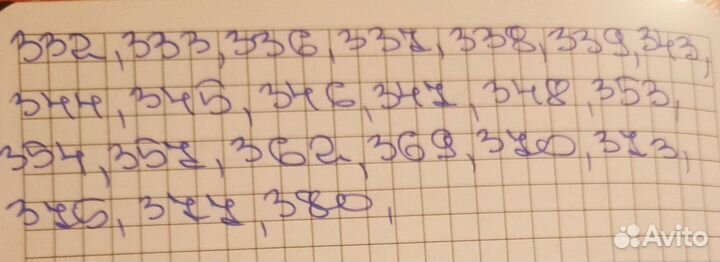 332, 333, 336, 337, 338, 339, 343,
344, 345, 346, 347, 348, 353,
354, 357, 362, 369, 370, 373,
375, 377, 380,
Avito